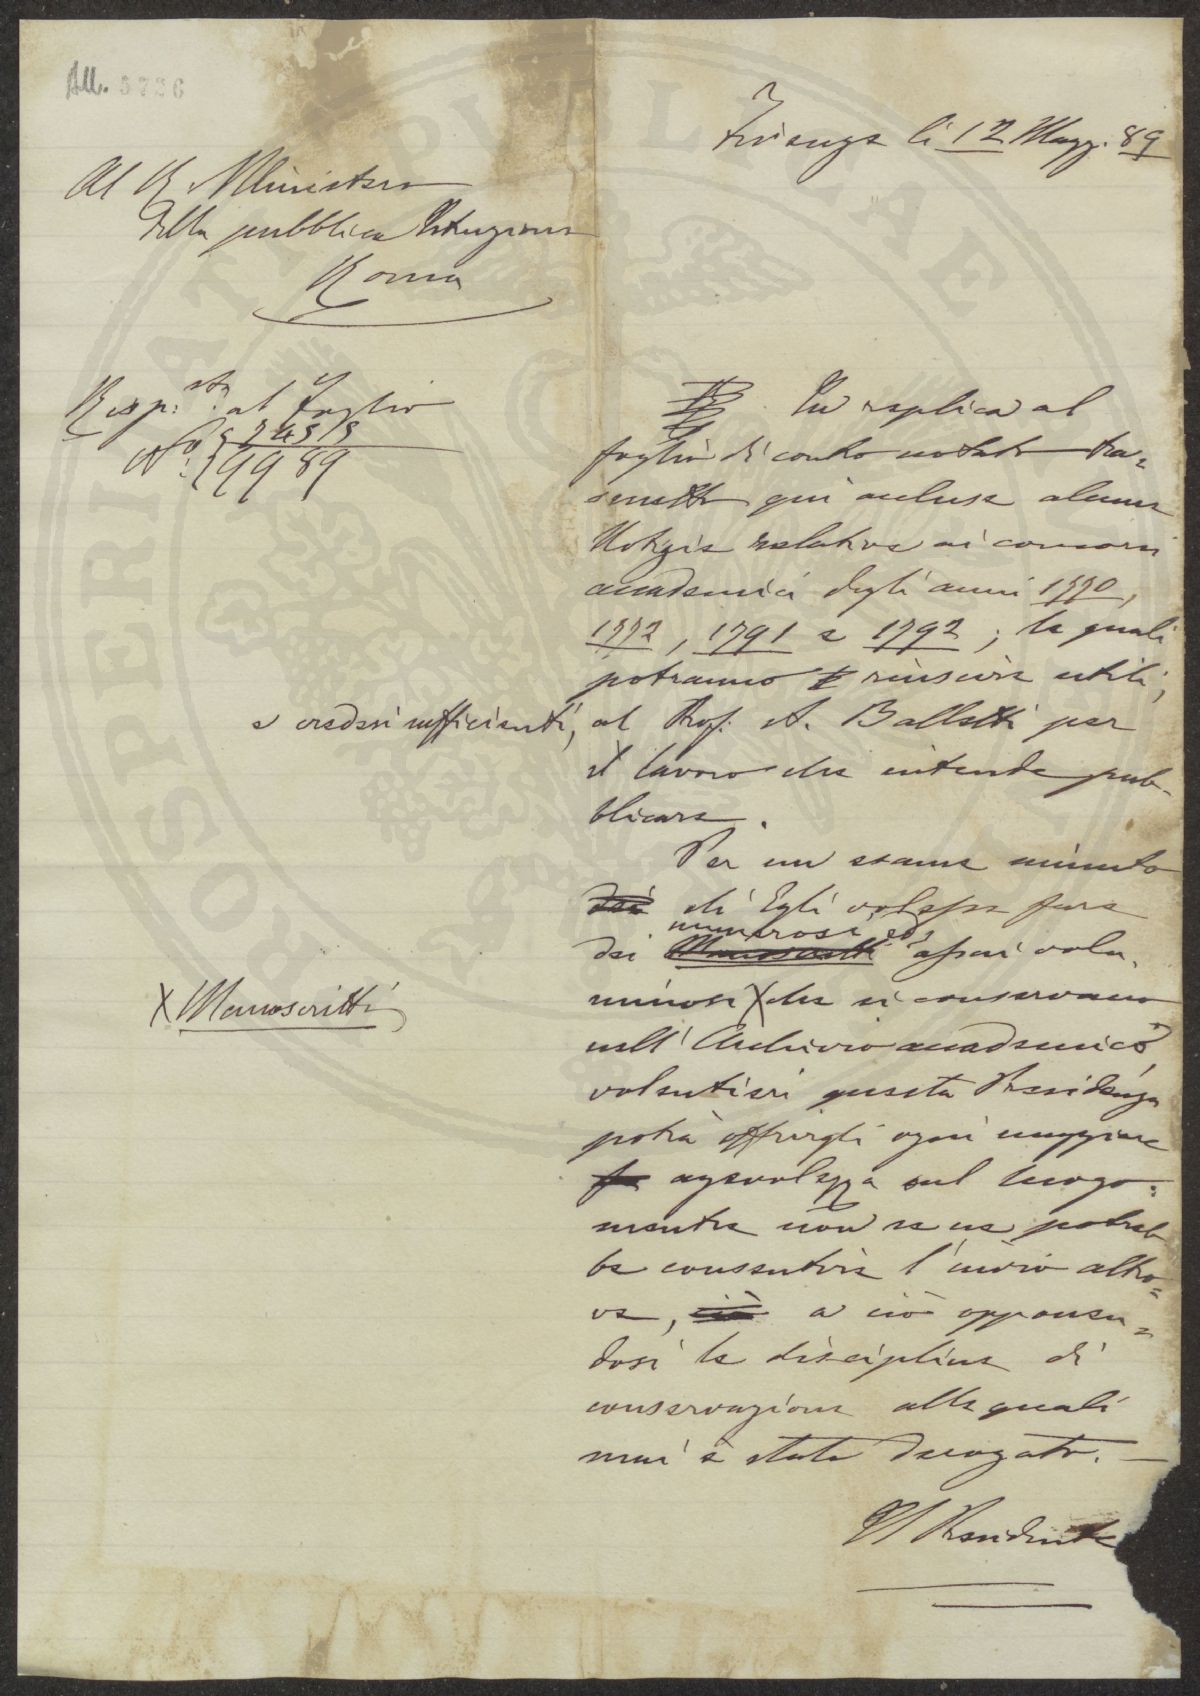 All. 5736
Firenze li 12 Magg. 89
Al R. Ministero
della pubblica Istruzione
Roma
Risp.sta al foglio
N.o 7455
9989
In replica al
foglio di contro notato tra=
smetto qui acclusa alcune
Notizie relative ai concorsi
accademici degli anni 1770,
1772, 1791 e 1792; le quali
potranno riuscire utili,
e credesi sufficienti,
al Prof. A. Balletti per
il lavoro che intende pub-
blicare.
Per un esame minuto
che Egli volesse fare
dei numerosi, ed assai volu-
minosi X che si conservano
X Manoscritti
nell'Archivio accademico,
volentieri questa Presidenza
potrà offrirgli ogni maggiore
agevolezza sul luogo:
mentre non se ne potreb
be consentire l'invio altro=
ve, a ciò opponen=
dosi le discipline di
conservazione alle quali
mai è stato derogato. —
Il Presidente